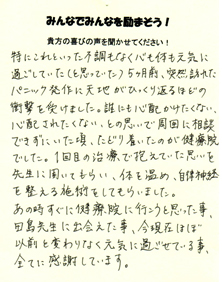 みんなでみんなを励まそう！
貴方の喜びの声を聞かせてください！
特にこれといった不調もなく心も体も元気に
過ごしていた(と思っていた)5ヶ月前、突然訪れた
パニック発作に天地がひっくり返るほどの
衝撃を受けました。誰にも心配かけたくない、
心配されたくない、との思いで周囲に相談
できずにいた頃、たどり着いたのが健療院
でした。1回目の治療で抱えていた思いを
先生に聞いてもらい、体を温め、自律神経
を整える施術をしてもらいました。
あの時すぐに健療院に行こうと思った事、
田島先生に出会えた事、今現在ほぼ
以前と変わりなく元気に過ごせている事、
全てに感謝しています。